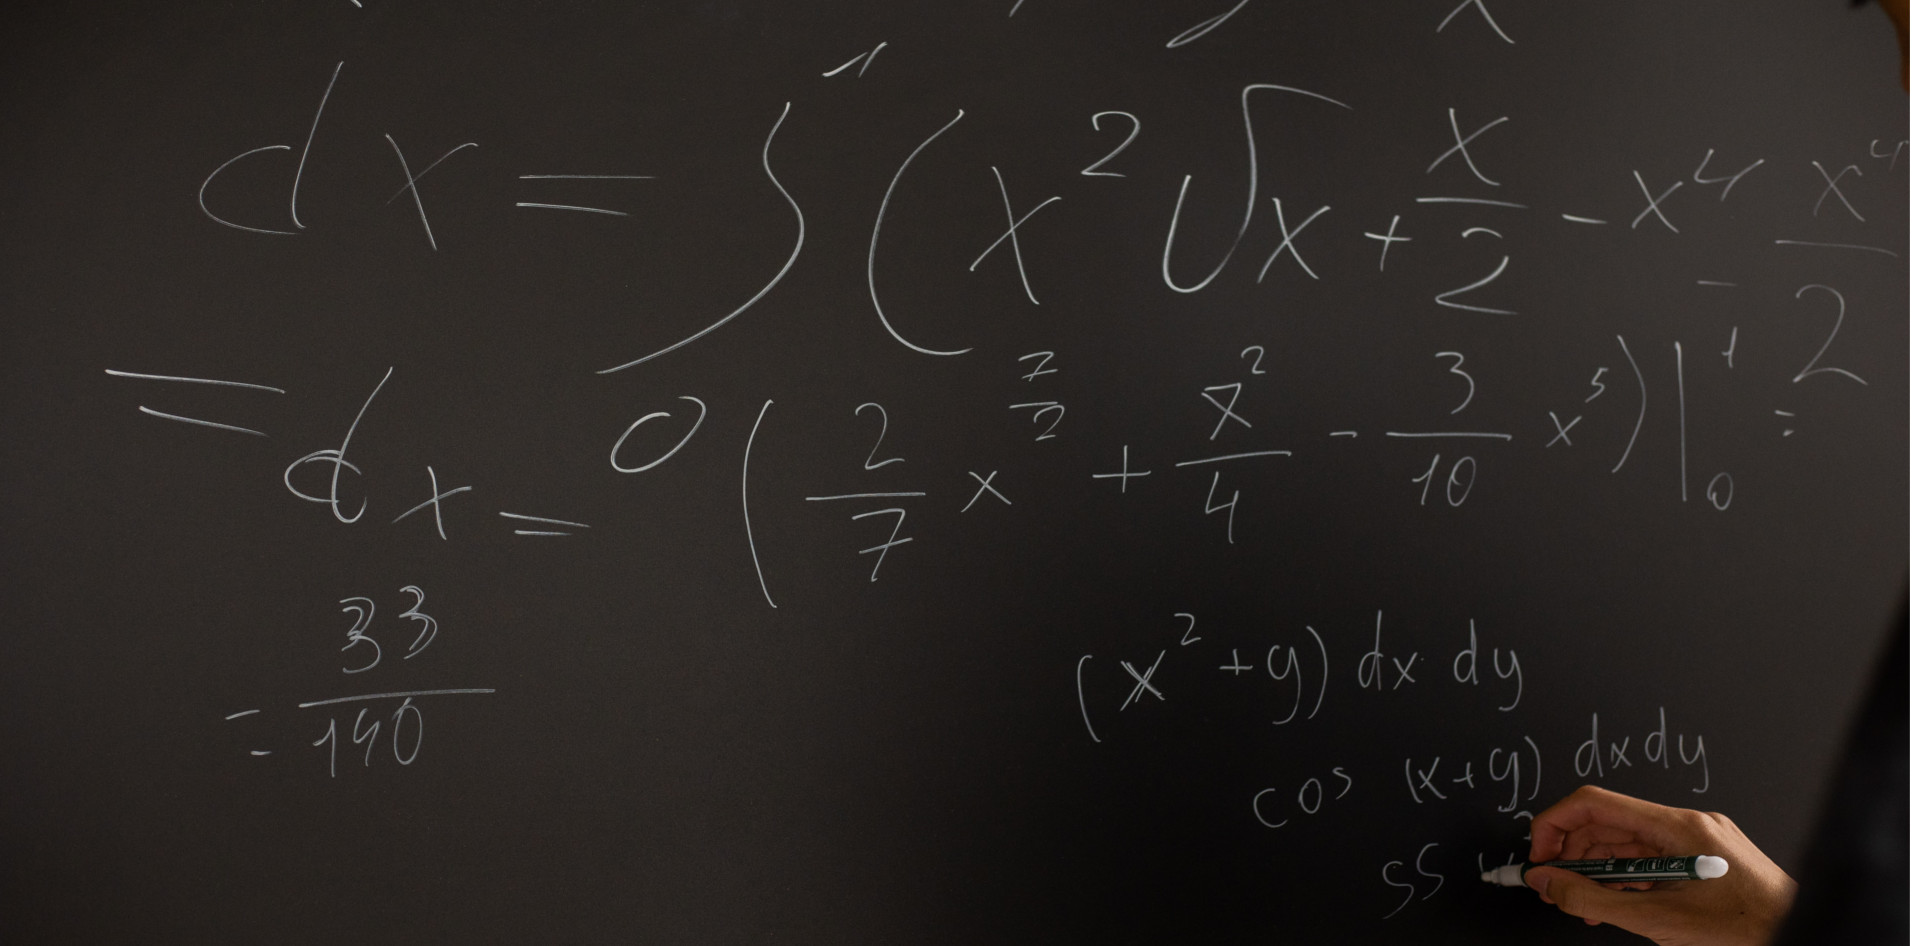 dx = ∫₀¹ (x² √x + x/2 - x⁴ - x⁴/2
= dx = (2/7 x^(7/2) + x²/4 - 3/10 x⁵) |₀¹ =
= 33/140
(x² + y) dx dy
cos (x+y) dx dy
SS